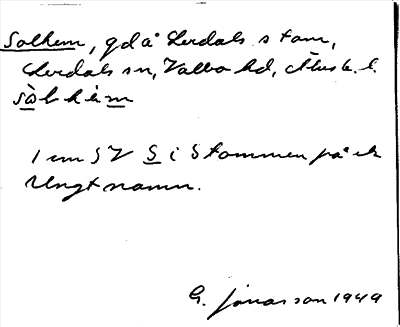 Solhem, gd å Lerdals stom,
Lerdals sn, Valbo hd, Älvsb. l.
sòlhèm
1 cm SV S i Stommen på ek
Ungt namn.
G. Jonasson 1949